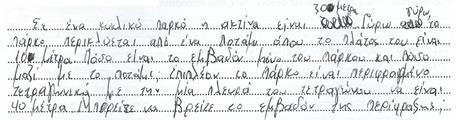 300 μέτρα γύρω
Σε ένα κυκλικό πάρκο η ακτίνα είναι το
πάρκο, περικλύεται από ένα ποτάμι όπου το πλάτος του είναι
10 μέτρα. Πόσο είναι το εμβαδόν μόνο του πάρκου και πόσο
μαζί με το ποτάμι; επιπλέον το πάρκο είναι περιφραγμένο
τετραγωνικά με την μία πλευρά του τετραγώνου να είναι
40 μέτρα Μπορείτε να βρείτε το εμβαδόν της περίφραξης;